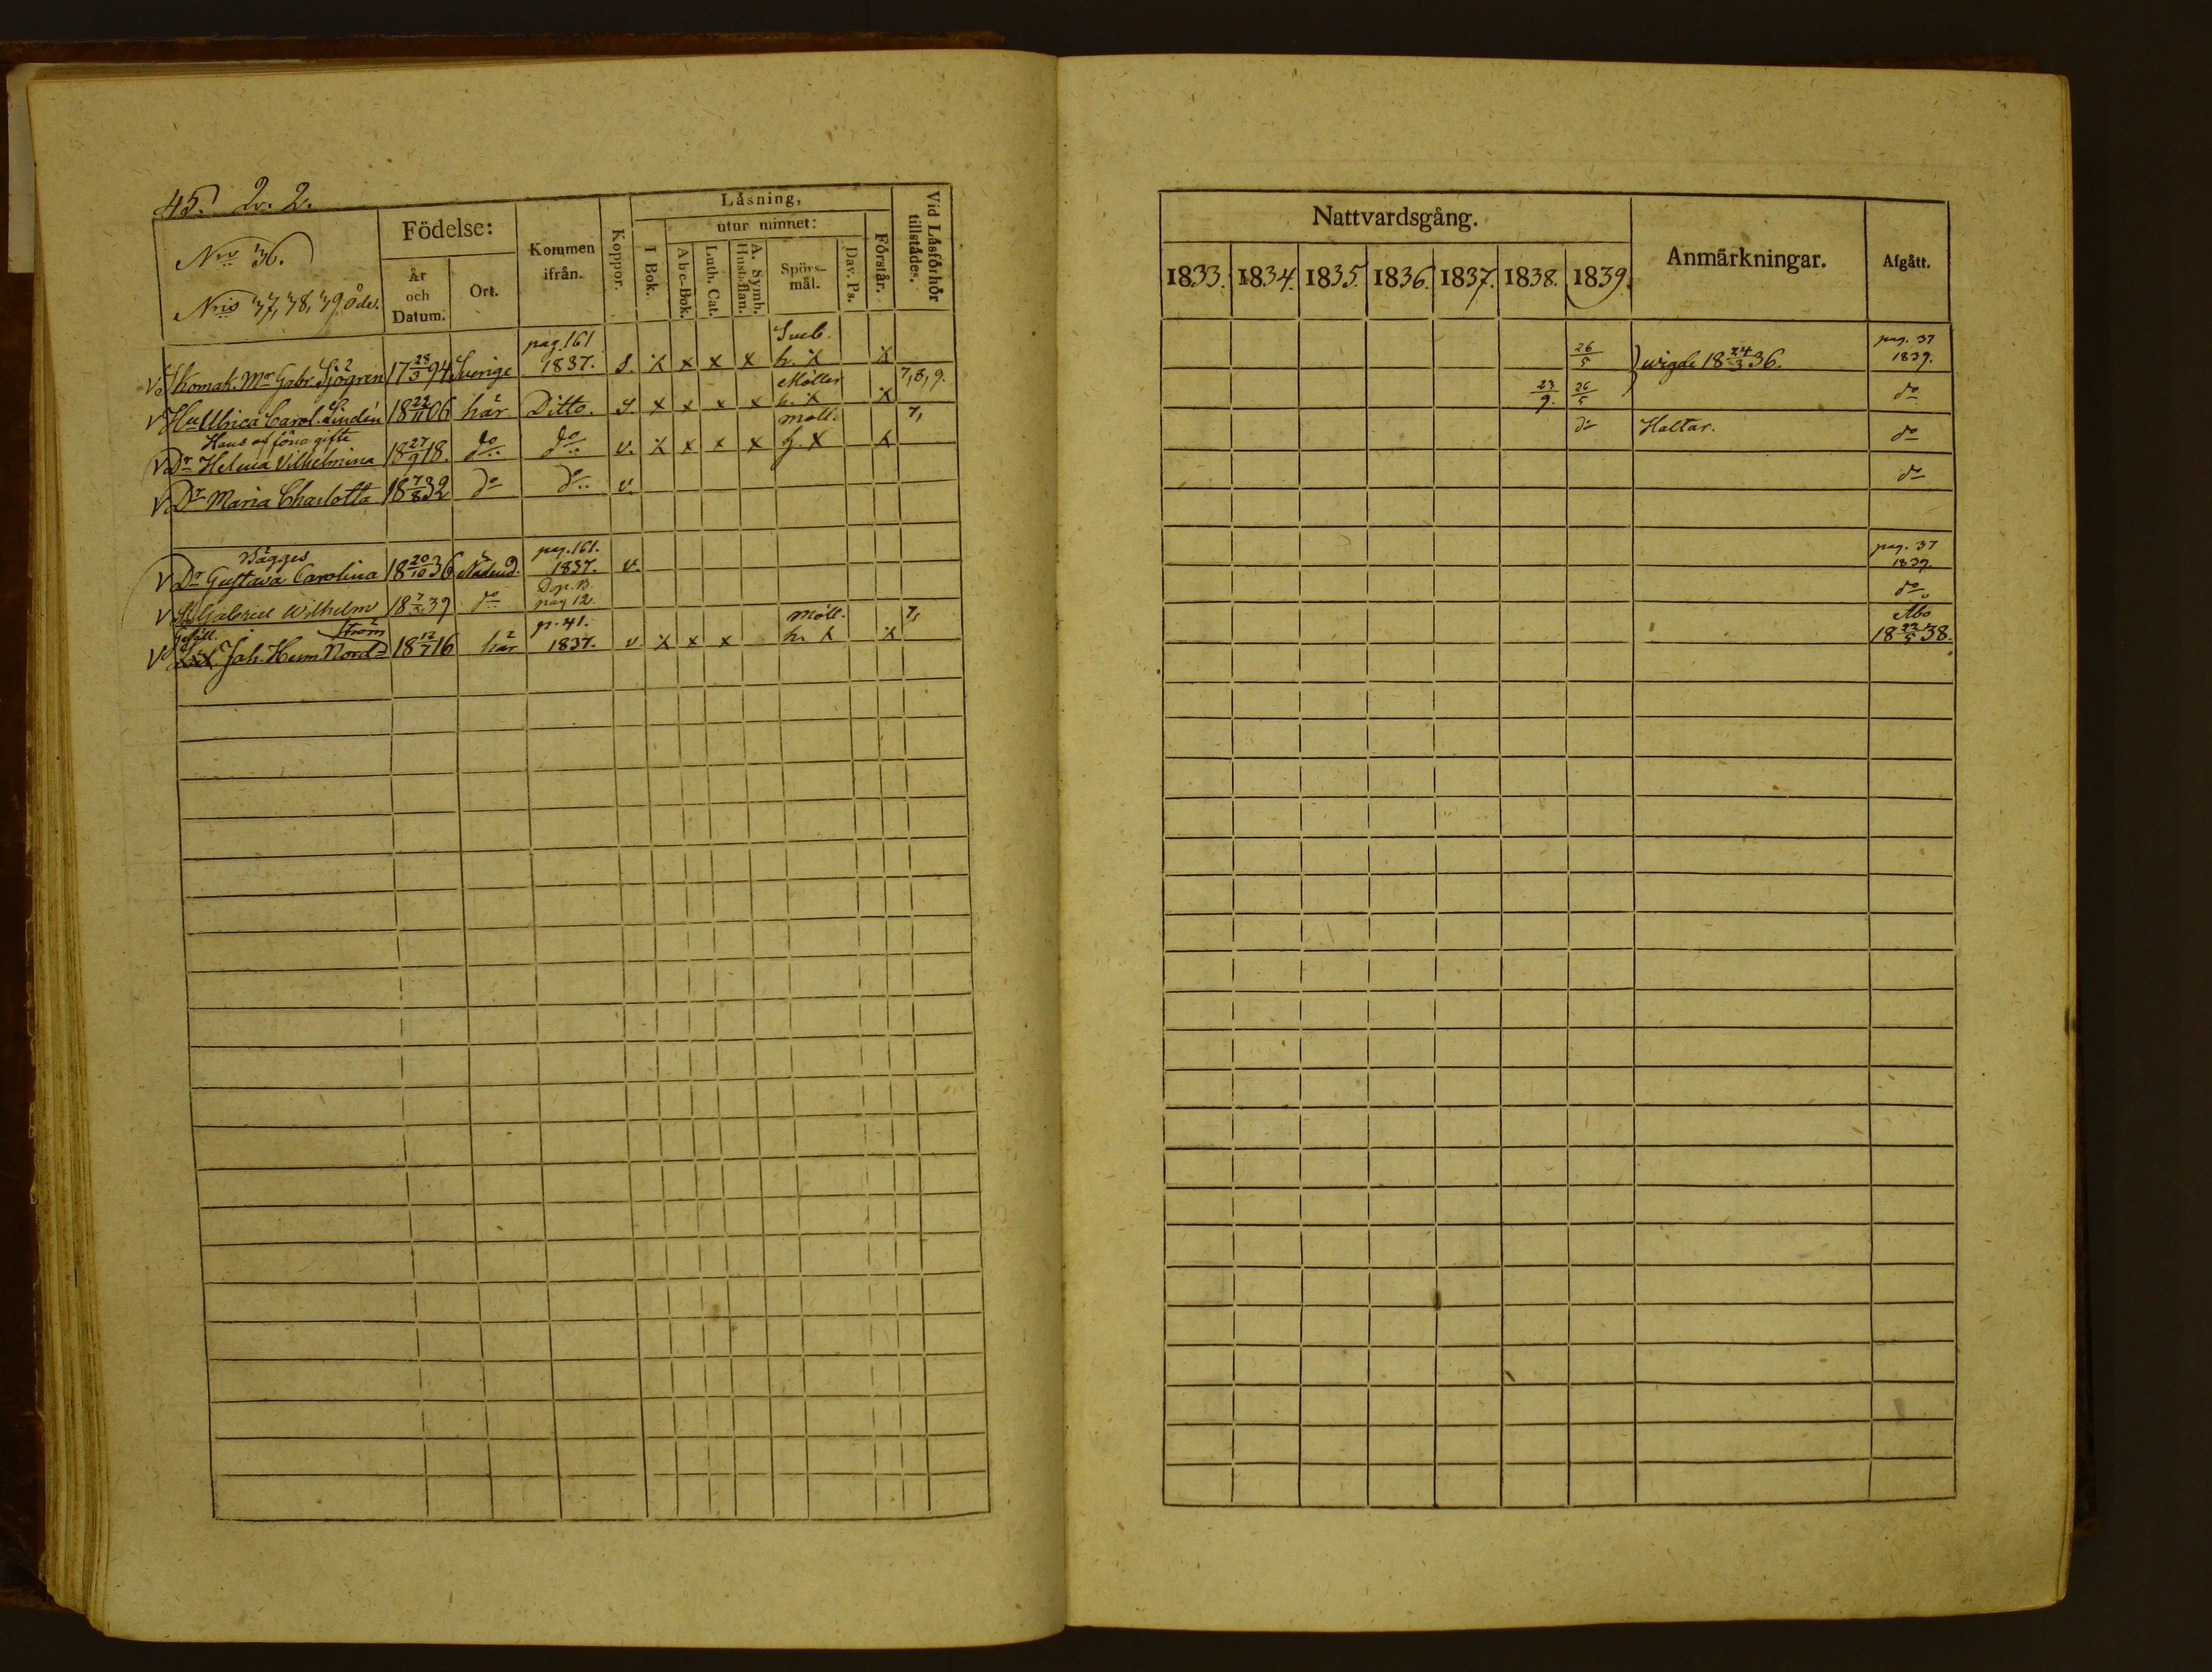 45. 2. 2.
Nro 36.
Nris 37, 38, 39 öde.
Födelse:
År och Datum.
Ort.
Kommen ifrån.
Koppor.
Läsning,
I Bok.
utur minnet:
Abc-Bok.
Luth. Cat.
A. Symb. Hust-flan.
Spörs-mål.
Dav. Ps.
Förstår.
Vid Läsförhör tillstädes.
Nattvardsgång.
1833. 1834. 1835. 1836. 1837. 1838. 1839.
Anmärkningar.
Afgått.
v Skomak. Mr Gabr. Sjögren 17 28/3 94 Sverige pag. 161 1837. s. x x x x Sveb. h. x x 26/5 wigde 18 24/3 36. pag. 37 1839.
v Hu Ulrica Carol. Lindén 18 22/11 06 här Ditto. s. x x x x Möller h. x x 7, 8, 9. 23/9. 26/5 do
Hans af förra gifte
v Dr Helena Vilhelmina 18 27/9 18. do do v. x x x x Möll. h. x x 7, do Haltar. do
v Dr Maria Charlotta 18 7/8 32 do do v. do
Bägges
v Dr Gustava Carolina 18 20/10 36 Nådend. pag. 161. 1837. v. pag. 37 1839.
v S. Gabriel Wilhelm 18 7/3 39 do Dop. B. pag 12. do
v Gesäll. Joh. Herm Nordström 18 12/7 16 här p. 41. 1837. v. x x x Möll. h. x x 7, Åbo 18 22/5 38.